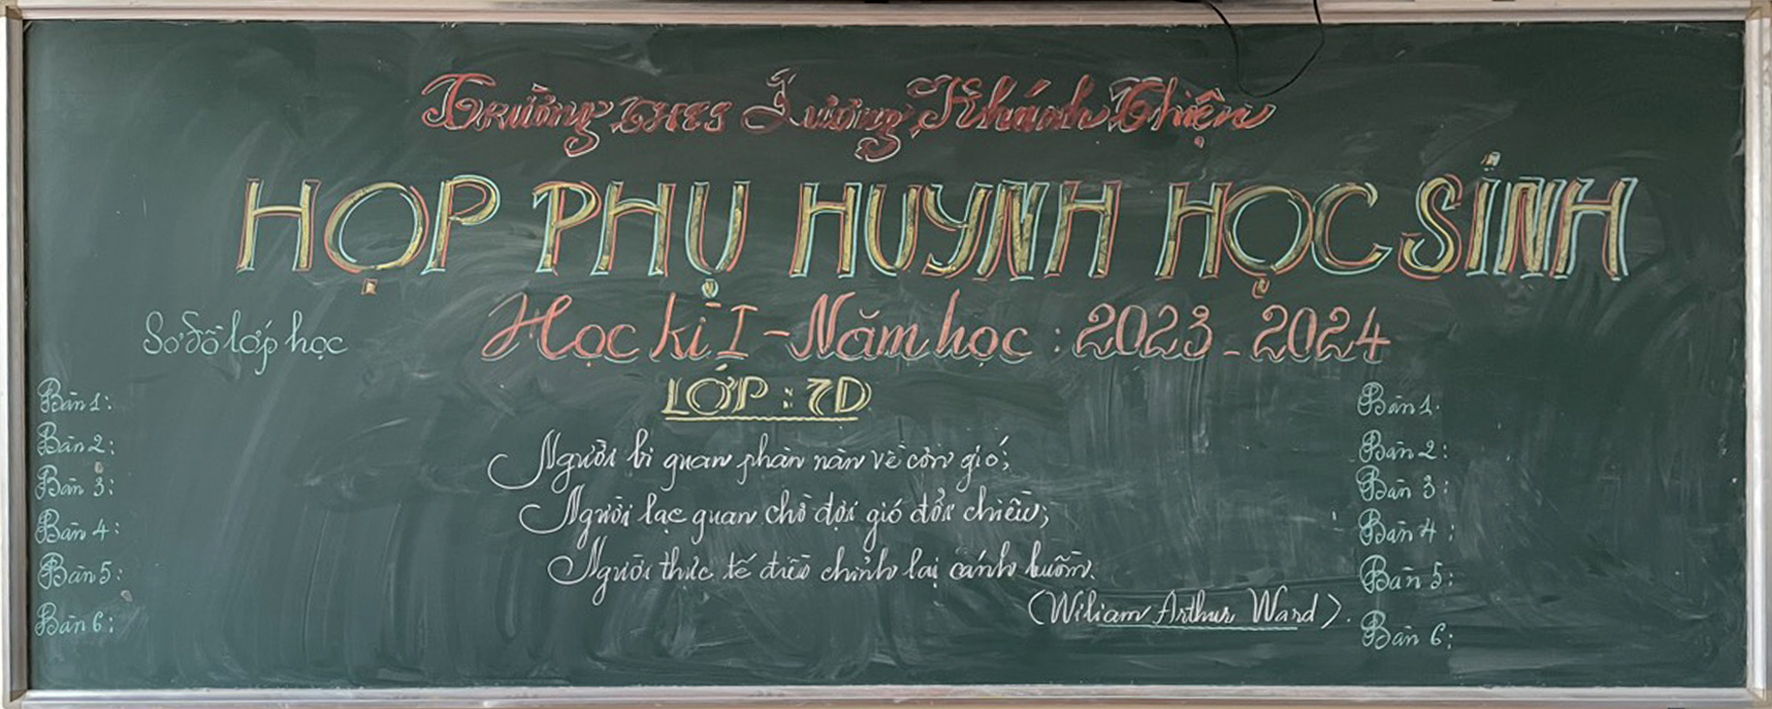 Trường THCS Lương Khánh Thiện
HỌP PHỤ HUYNH HỌC SINH
Học kì I - Năm học : 2023 - 2024
LỚP : 7D
Sơ đồ lớp học
Bàn 1:
Bàn 2:
Bàn 3:
Bàn 4:
Bàn 5:
Bàn 6:
Người bi quan phàn nàn về cơn gió;
Người lạc quan chờ đợi gió đổi chiều;
Người thực tế điều chỉnh lại cánh buồm.
(Wiliam Arthur Ward).
Bàn 1:
Bàn 2:
Bàn 3:
Bàn 4:
Bàn 5:
Bàn 6: